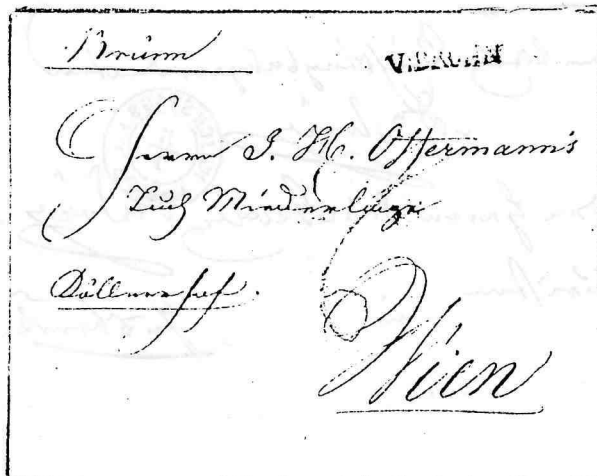 Brünn
V.BRÜNN
Herrn J. H. Offermann's
Tuch Niederlage
Köllnerhof.
Wien